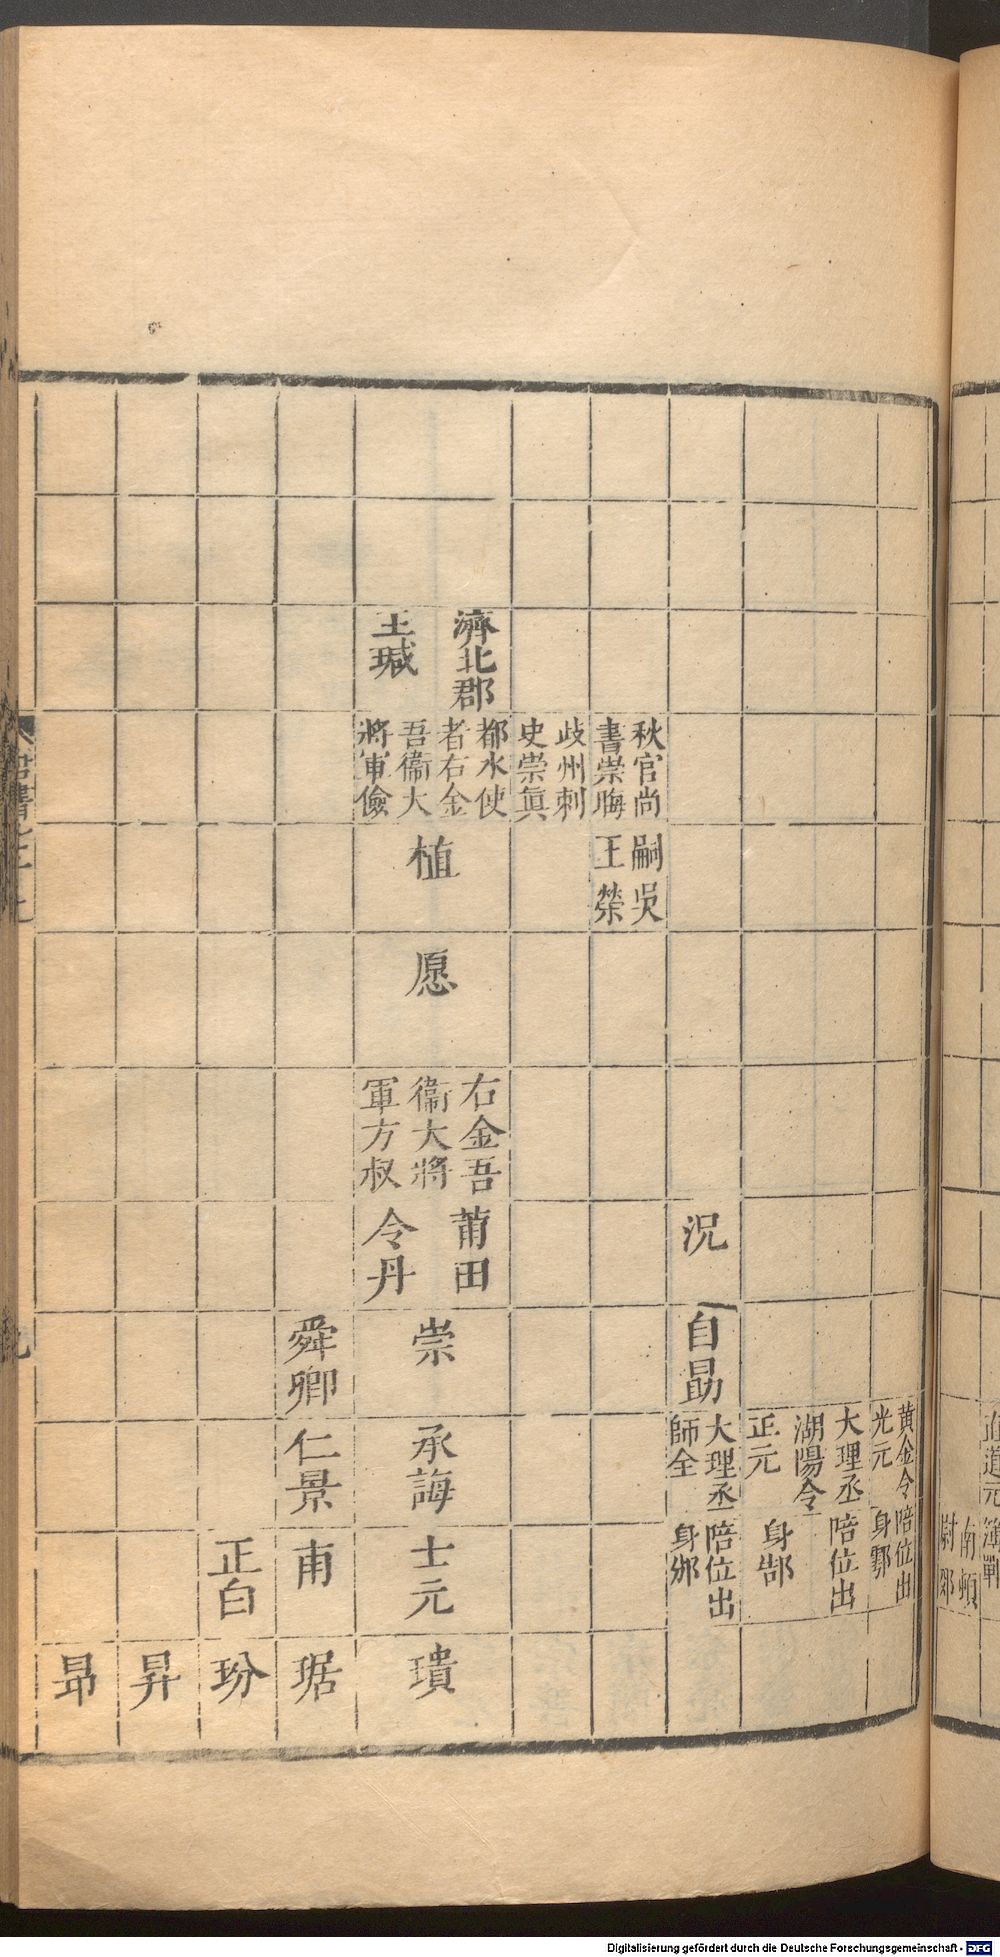 黃金令
光元
陪位出
身鄠
大理丞
湖陽令
正元
陪位出
身郜
況
自勗
大理丞
師全
陪位出
身邠
秋官尚
書崇晦
嗣吳
王榮
歧州刺
史崇眞
濟北郡
王瑊
都水使
者右金
吾衞大
將軍儉
植
愿
右金吾
衞大將
軍方叔
莆田
令丹
崇
承誨
士元
璝
舜卿
仁景
甫
琚
正白
玢
昇
昴
道元
簿戰
南頓
尉郢
Digitalisierung gefördert durch die Deutsche Forschungsgemeinschaft - DFG